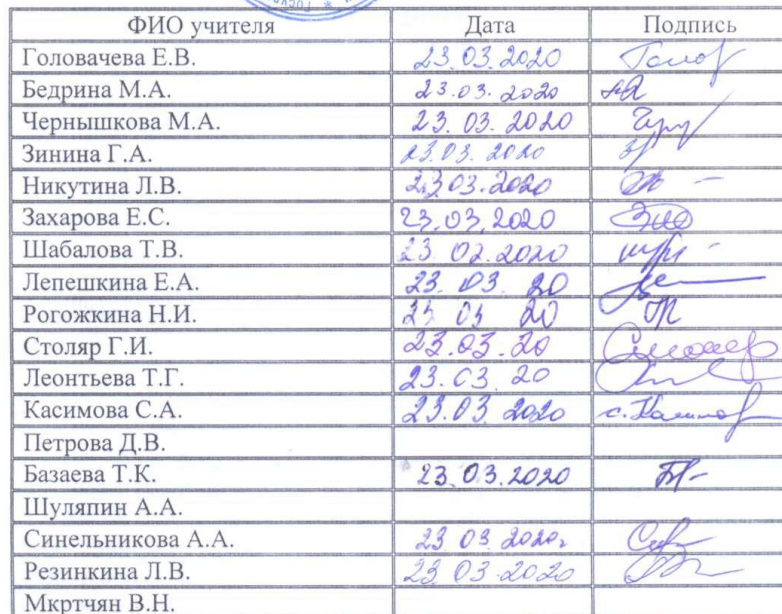 ФИО учителя Дата Подпись
Головачева Е.В. 23.03.2020
Бедрина М.А. 23.03.2020
Чернышкова М.А. 23.03.2020
Зинина Г.А. 23.03.2020
Никутина Л.В. 23.03.2020
Захарова Е.С. 23.03.2020
Шабалова Т.В. 23.03.2020
Лепешкина Е.А. 23.03.20
Рогожкина Н.И. 23 03 20
Столяр Г.И. 23.03.20
Леонтьева Т.Г. 23.03.20
Касимова С.А. 23.03.2020
Петрова Д.В.
Базаева Т.К. 23.03.2020
Шуляпин А.А.
Синельникова А.А. 23 03 2020г
Резинкина Л.В. 23.03.2020
Мкртчян В.Н.